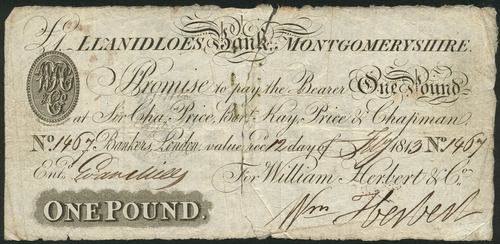 LLANIDLOES Bank, MONTGOMERYSHIRE.
I Promise to pay the Bearer One Pound
at Sir Cha.s Price, Bar.t Kay, Price & Chapman,
No. 1467 Bankers, London. value rec.d 12 day of July 1813 No. 1467
Ent.d For William Herbert & Co.
ONE POUND. Wm Herbert